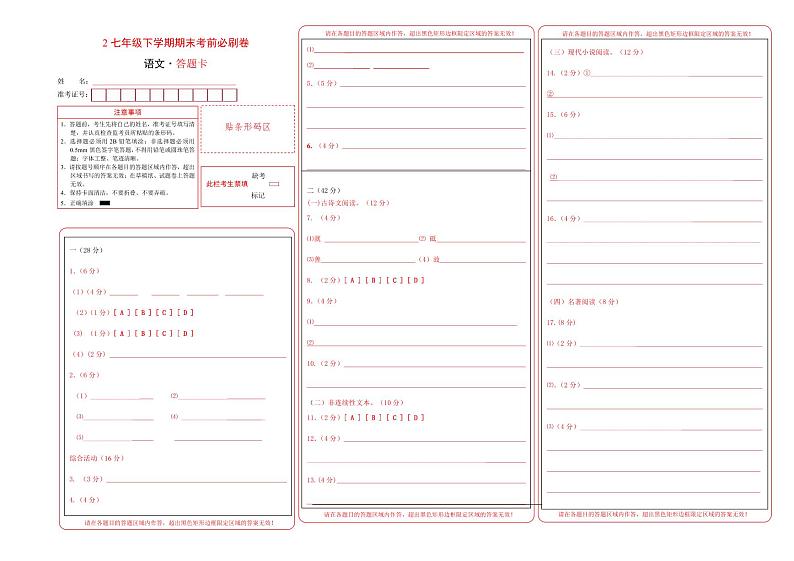 2 七年级下学期期末考前必刷卷
语文·答题卡
姓 名：
准考证号：
注意事项
1．答题前，考生先将自己的姓名，准考证号填写清
楚，并认真检查监考员所粘贴的条形码。
2．选择题必须用 2B 铅笔填涂；非选择题必须用
0.5mm 黑色签字笔答题，不得用铅笔或圆珠笔答
题；字体工整、笔迹清晰。
3．请按题号顺序在各题目的答题区域内作答，超出
区域书写的答案无效；在草稿纸、试题卷上答题
无效。
4．保持卡面清洁，不要折叠、不要弄破。
5．正确填涂
贴条形码区
此栏考生禁填
缺考
标记
一（28 分）
1．（6 分）
（1）（4 分）
（2）（1 分）[ A ] [ B ] [ C ] [ D ]
（3）（1 分）[ A ] [ B ] [ C ] [ D ]
（4）（2 分）
2．（6 分）
（1） ⑵
⑶ ⑷
⑸
综合活动（16 分）
3. （3 分）
4．（4 分）
请在各题目的答题区域内作答，超出黑色矩形边框限定区域的答案无效！
请在各题目的答题区域内作答，超出黑色矩形边框限定区域的答案无效！
⑴
⑵
5．（5 分）
6．（4 分）
二（42 分）
（一）古诗文阅读。（12 分）
7. （4 分）
⑴就 ⑵ 砥
⑶善 （4）故
8. （2 分）[ A ] [ B ] [ C ] [ D ]
9．（4 分）
⑴
⑵
10．（2 分）
（二）非连续性文本。（10 分）
11.（2 分）[ A ] [ B ] [ C ] [ D ]
12．（4 分）
13.（4 分）
请在各题目的答题区域内作答，超出黑色矩形边框限定区域的答案无效！
请在各题目的答题区域内作答，超出黑色矩形边框限定区域的答案无效！
（三）现代小说阅读。（12 分）
14．（2 分）①
②
15．（6 分）
⑵
16．（4 分）
（四）名著阅读（8 分）
17.（8 分)
⑴（2 分）
⑵．（2 分）
⑶（4 分）
请在各题目的答题区域内作答，超出黑色矩形边框限定区域的答案无效！